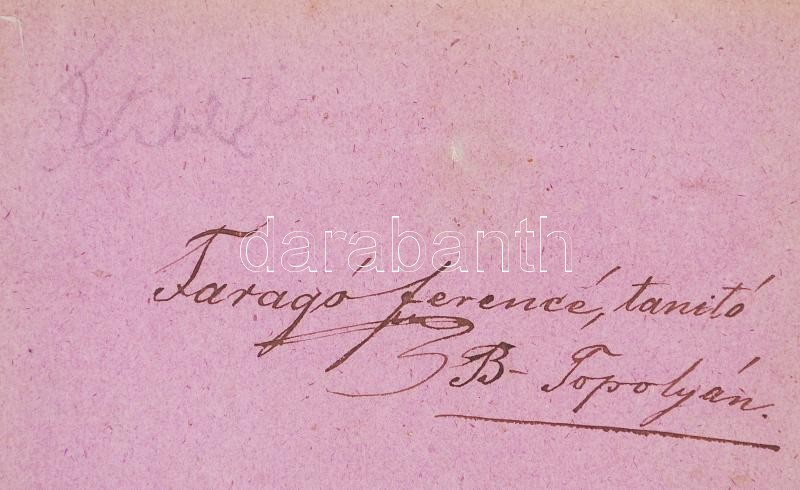 darabanth
Faragó Ferencé, tanitó
B- Topolyán.